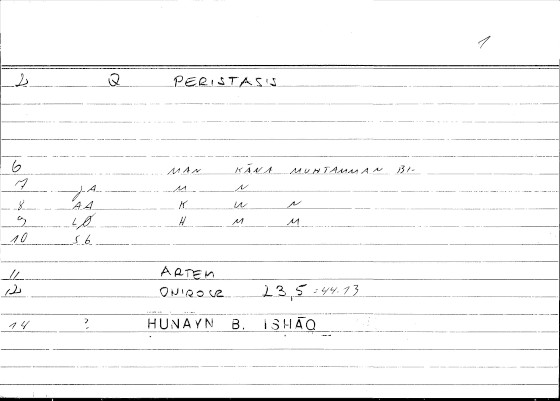 1
2 Q PERISTASIS
6 MAN KĀNA MUHTAMMAN BI-
7 JA M N
8 AA K W N
9 LØ H M M
10 S6
11 ARTEM
12 ONIROCR 23,5 = 44.13
14 ? HUNAYN B. ISHĀQ